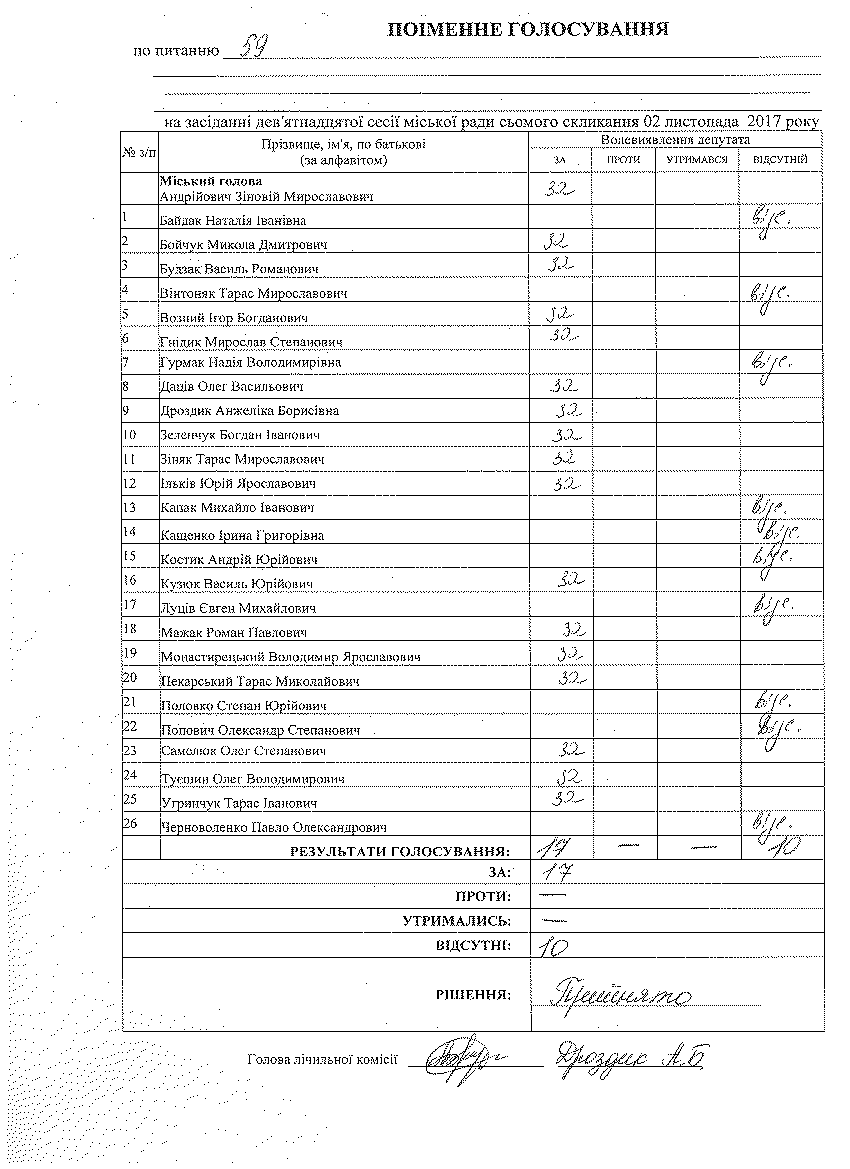 ПОІМЕННЕ ГОЛОСУВАННЯ
по питанню 59
на засіданні дев'ятнадцятої сесії міської ради сьомого скликання 02 листопада 2017 року
№ з/п Прізвище, ім'я, по батькові (за алфавітом) Волевиявлення депутата
ЗА ПРОТИ УТРИМАВСЯ ВІДСУТНІЙ
Міський голова
Андрійович Зіновій Мирославович за
1 Байдак Наталія Іванівна відс.
2 Бойчук Микола Дмитрович за
3 Будзак Василь Романович за
4 Вінтоняк Тарас Мирославович відс.
5 Возний Ігор Богданович за
6 Гнідик Мирослав Степанович за
7 Гурмак Надія Володимирівна відс.
8 Даців Олег Васильович за
9 Дроздик Анжеліка Борисівна за
10 Зеленчук Богдан Іванович за
11 Зіняк Тарас Мирославович за
12 Ільків Юрій Ярославович за
13 Капак Михайло Іванович відс.
14 Кащенко Ірина Григорівна відс.
15 Костик Андрій Юрійович відс.
16 Кузюк Василь Юрійович за
17 Луців Євген Михайлович відс.
18 Мажак Роман Павлович за
19 Монастирецький Володимир Ярославович за
20 Пекарський Тарас Миколайович за
21 Половко Степан Юрійович відс.
22 Попович Олександр Степанович відс.
23 Самелюк Олег Степанович за
24 Туєшин Олег Володимирович за
25 Угринчук Тарас Іванович за
26 Черноволенко Павло Олександрович відс.
РЕЗУЛЬТАТИ ГОЛОСУВАННЯ: 17 — — 10
ЗА: 17
ПРОТИ: —
УТРИМАЛИСЬ: —
ВІДСУТНІ: 10
РІШЕННЯ: Прийнято
Голова лічильної комісії Дроздик А.Б